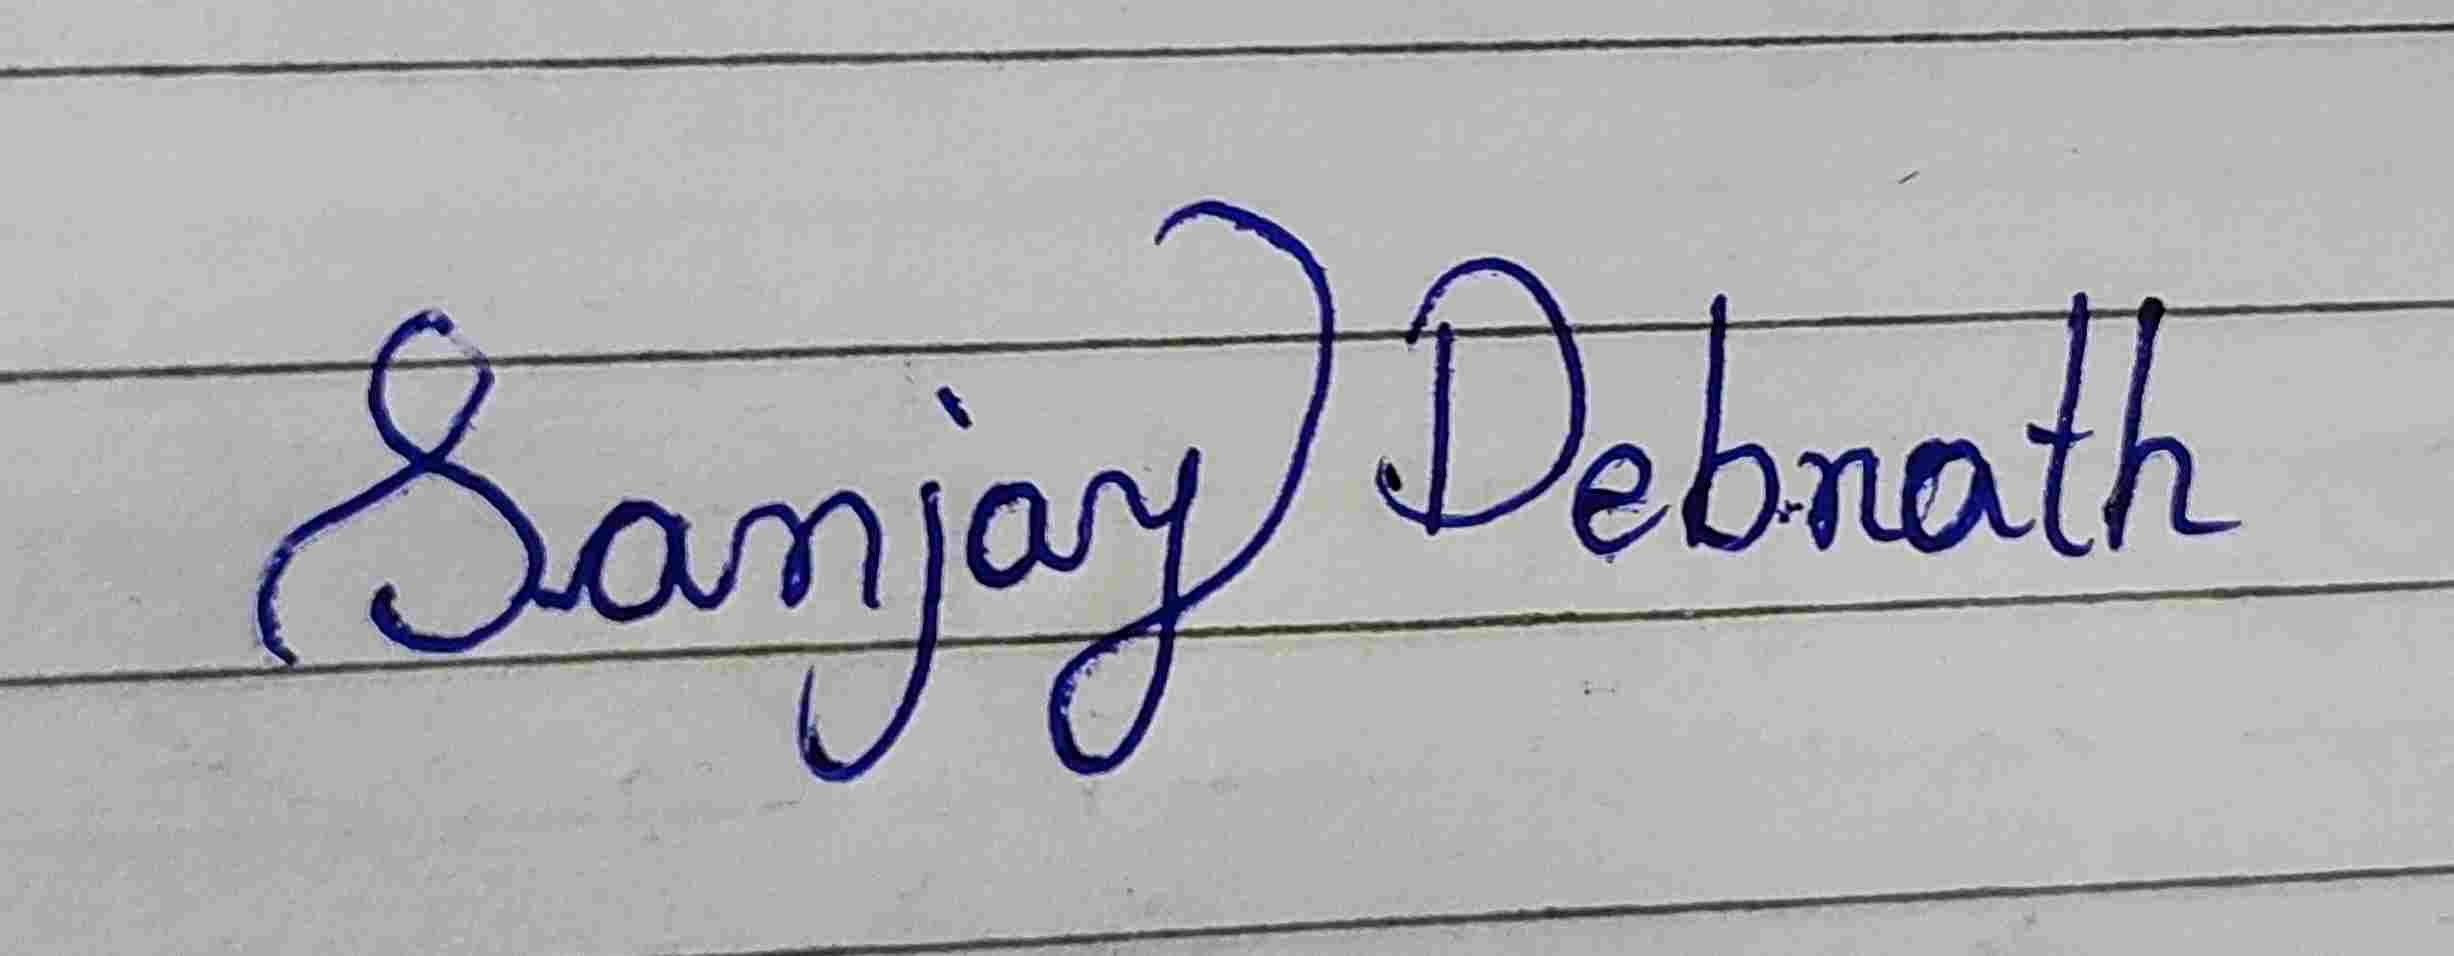 Sanjay Debnath